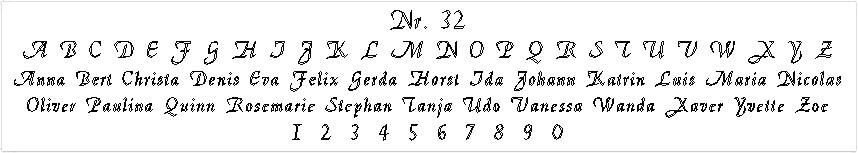 Nr. 32
A B C D E F G H I J K L M N O P Q R S T U V W X Y Z
Anna Bert Christa Denis Eva Felix Gerda Horst Ida Johann Katrin Luis Maria Nicolas
Oliver Paulina Quinn Rosemarie Stephan Tanja Udo Vanessa Wanda Xaver Yvette Zoe
1 2 3 4 5 6 7 8 9 0